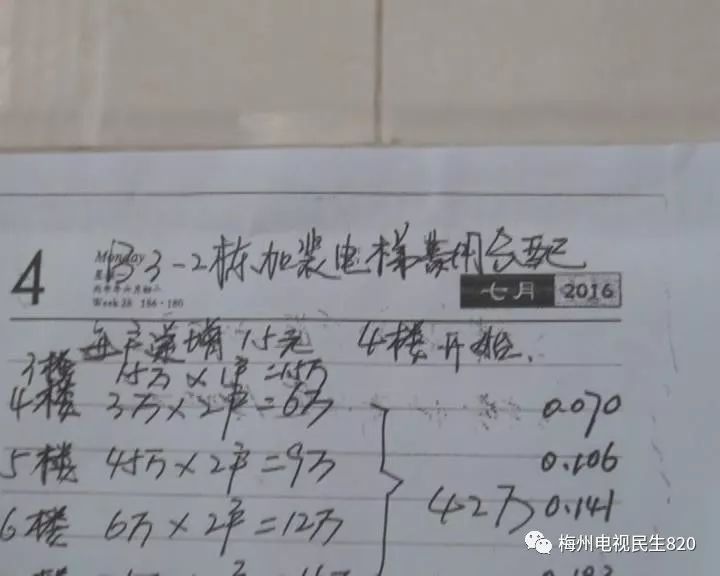 4
Monday
Week 28 186-180
B3-2栋加装电梯费用分配
七月 2016
每户递增1.5元 4楼开始.
3楼 1.5万×1户=1.5万
4楼 3万×2户=6万 0.070
5楼 4.5万×2户=9万 0.106
6楼 6万×2户=12万 42万 0.141
梅州电视民生820